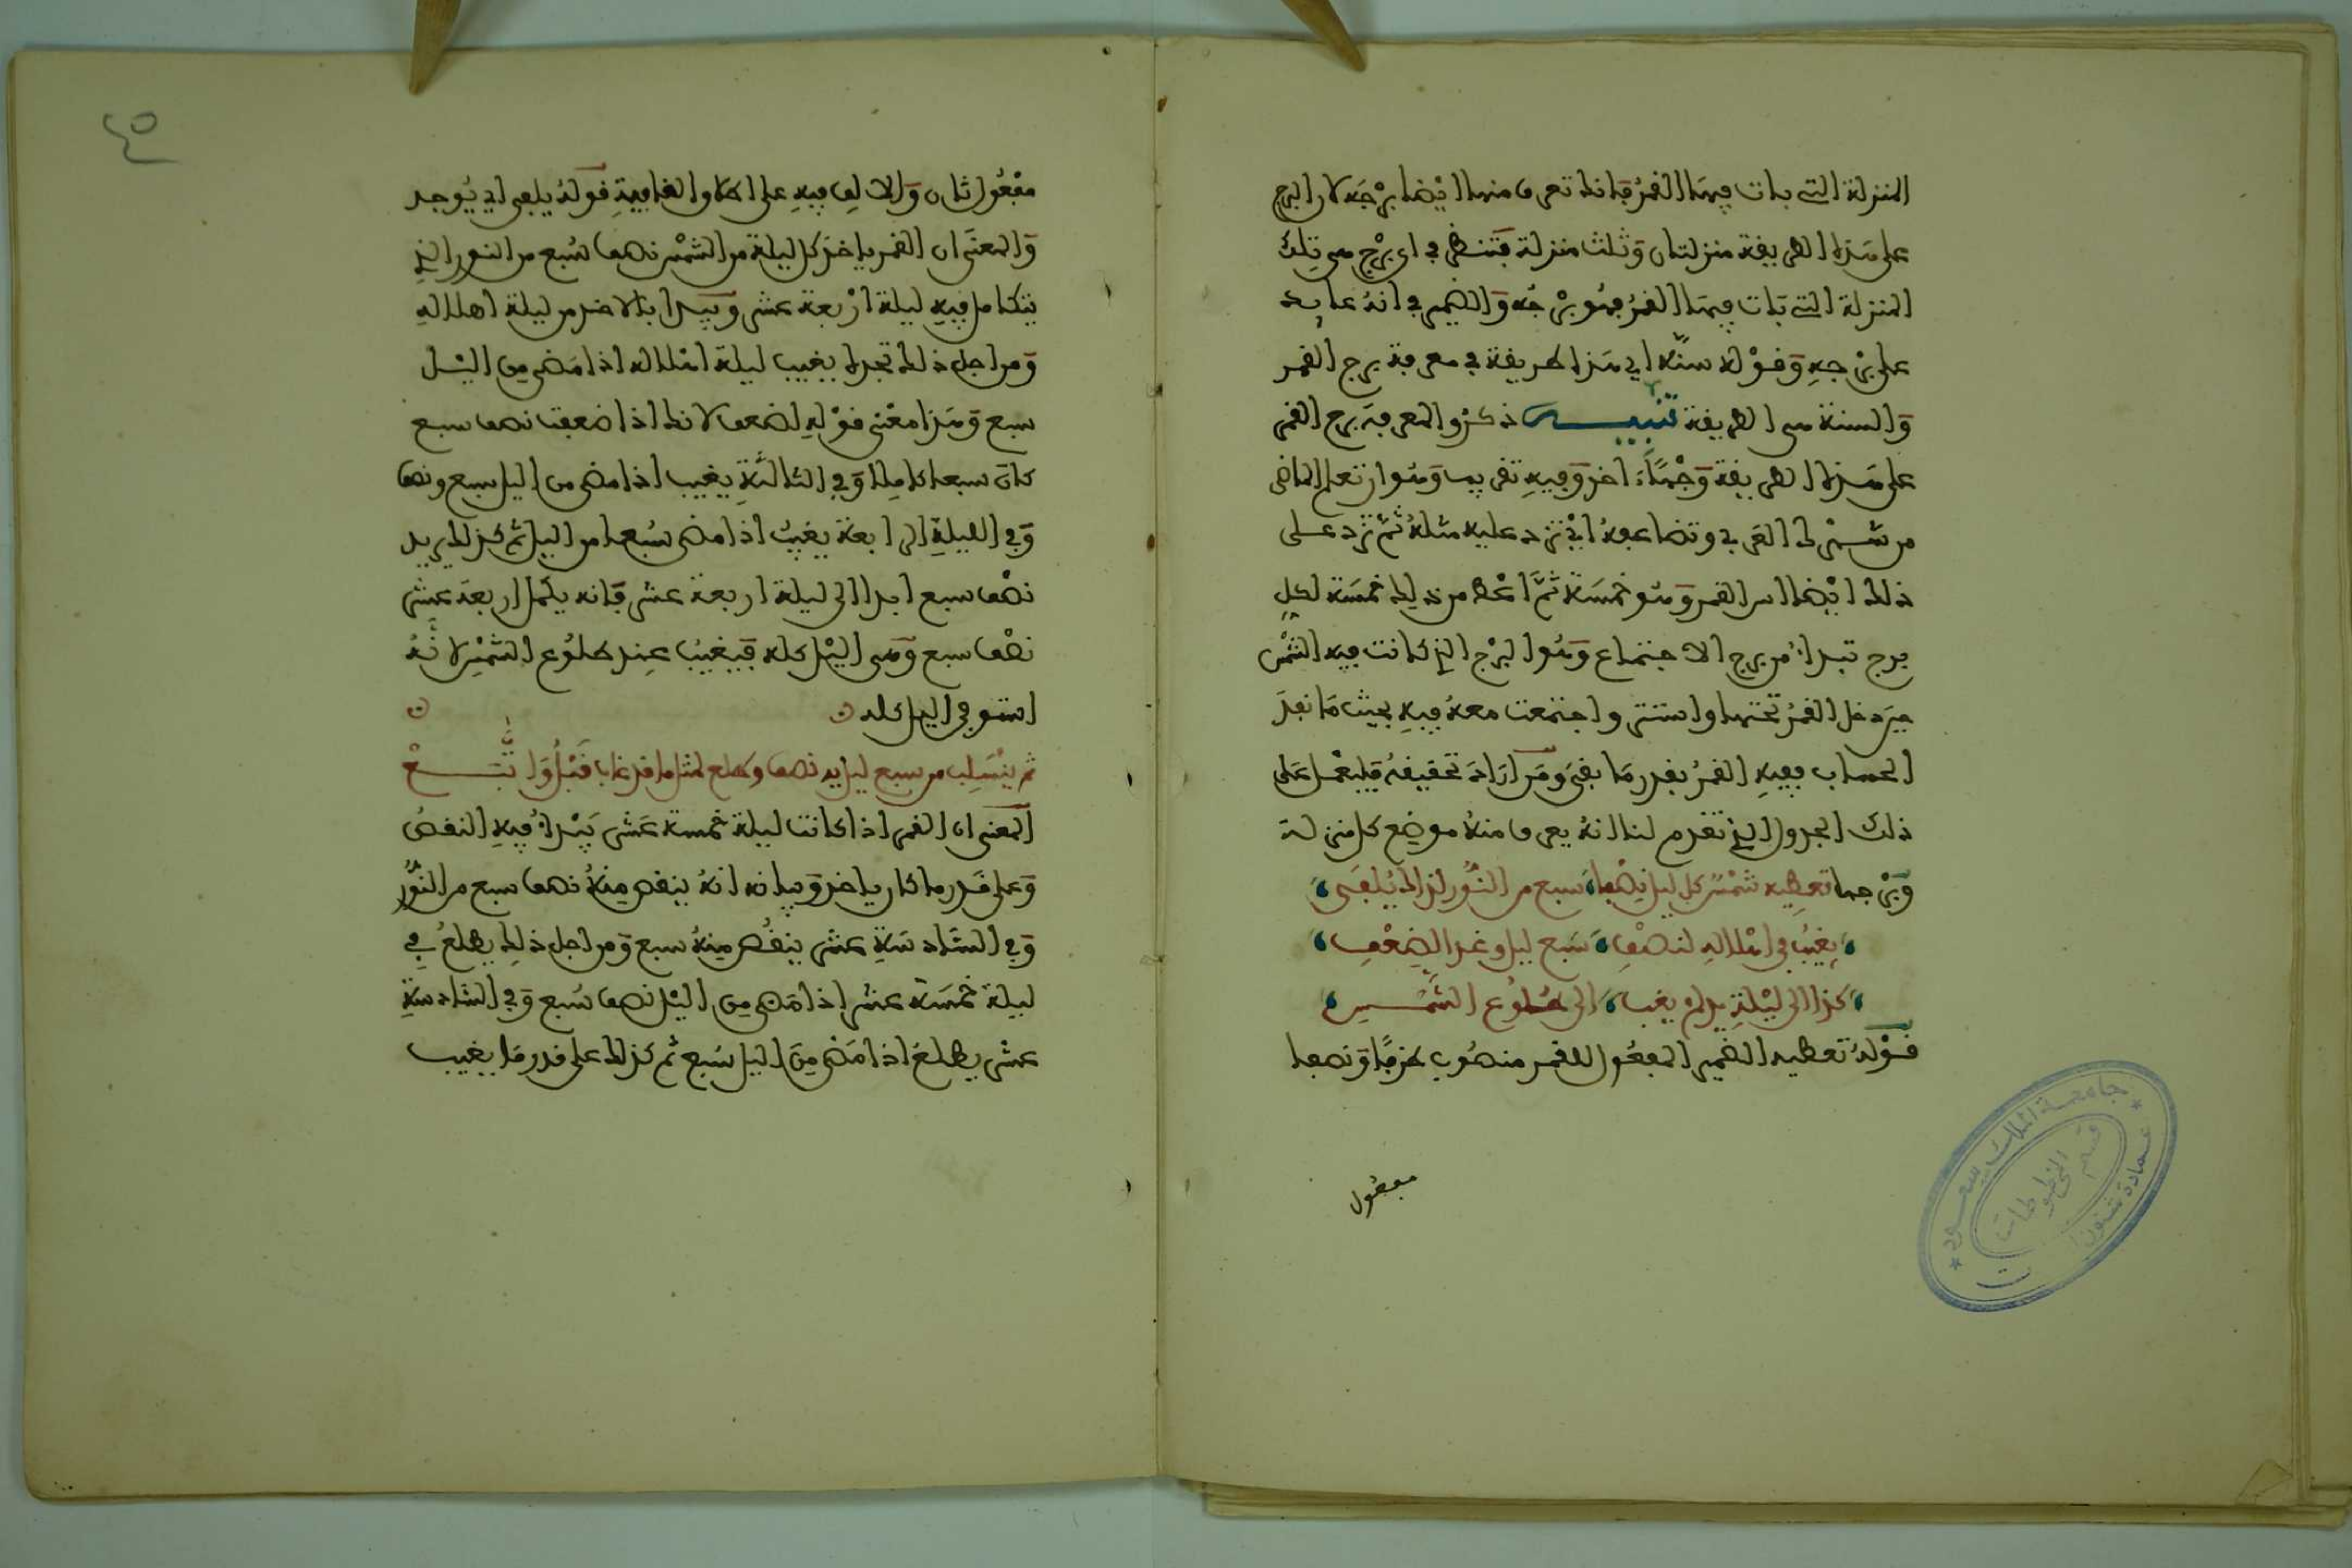 المنزلة التي بات فيها القمر فانك تعرف منها ايضا برجه لان البرج
على هذه الطريفة منزلتان وثلث منزلة فتنظر في اي برج هي تلك
المنزلة التي بات فيها القمر فهو برجه والضمير في انه عايد
على برجه وقوله سنه اي هذا طريقة في معرفة برج القمر
والسنة هي الطريقة تنبيه ذكروا لمعرفة برج القمر
على هذه الطريقة وجها اخر وفيه تقريب وهو ان تعلم الماضي
من شهرك العربي وتضاعفه اي تزد عليه مثله ثم تزد على
ذلك ايضا اس القمر وهو خمسة ثم اعط من ذلك خمسة لكل
برج تبدا من برج الاجتماع وهو البرج الذي كانت فيه الشمس
حين دخل القمر تحتها واستتر واجتمعت معه فيه بحيث ما نفد
الحساب ففيه القمر بقدر ما بقي ومن اراد تحقيقه فليعمل على
ذلك الجدول الذي تقدم لنا انه يعرف منه موضع كل منزلة
وبرجها تعطيه شمس كل ليل نصفا سبع من النور لذلك يلفى
يغيب في اهلاله لنصف سبع ليل وغدا لضعف
كذا الى ليلة يد لم يغب الى طلوع الشمس
قوله تعطيه الضمير المفعول للقمر منصوب محزفا ونصفا
مفعول
٤٥
مفعول ثان والالف فيه على اطلاق القافية قوله يلفى اي يوجد
والمعنى ان القمر ياخذ كل ليلة من الشمس نصف سبع من النور الذي
يتكامل فيه ليلة اربعة عشر ويبدا بالاخذ من ليلة اهلاله
ومن اجل ذلك تجده يغيب ليلة اهلاله اذا مضى من اليل
سبع وهذا معنى قوله لضعف لانك اذا ضعفت نصف سبع
كان سبعا كاملا وفي الثالثة يغيب اذا مضى من اليل سبع ونصف
وفي الليلة الرابعة يغيب اذا مضى سبعا من اليل ثم كذلك يزيد
نصف سبع ابدا الى ليلة اربعة عشر فانه يكمل اربعة عشر
نصف سبع وهي اليل كله فيغيب عند طلوع الشمس لانه
استوفى اليل كله
ثم ينسلب من سبع ليل يه نصف وطلع لمثل ما قد غاب قبل اول تتبع
المعنى ان القمر اذا كانت ليلة خمسة عشر يبدا فيه النقص
وعلى قدر ما كان ياخذ وبيانه انه ينقص منه نصف سبع من النور
وفي السادسة عشر ينقص منه سبع ومن اجل ذلك يطلع في
ليلة خمسة عشر اذا مضى من اليل نصف سبع وفي السادسة
عشر يطلع اذا مضى من اليل سبع ثم كذلك على قدر ما يغيب
جامعة الملك سعود
عمادة شئون
قسم المخطوطات